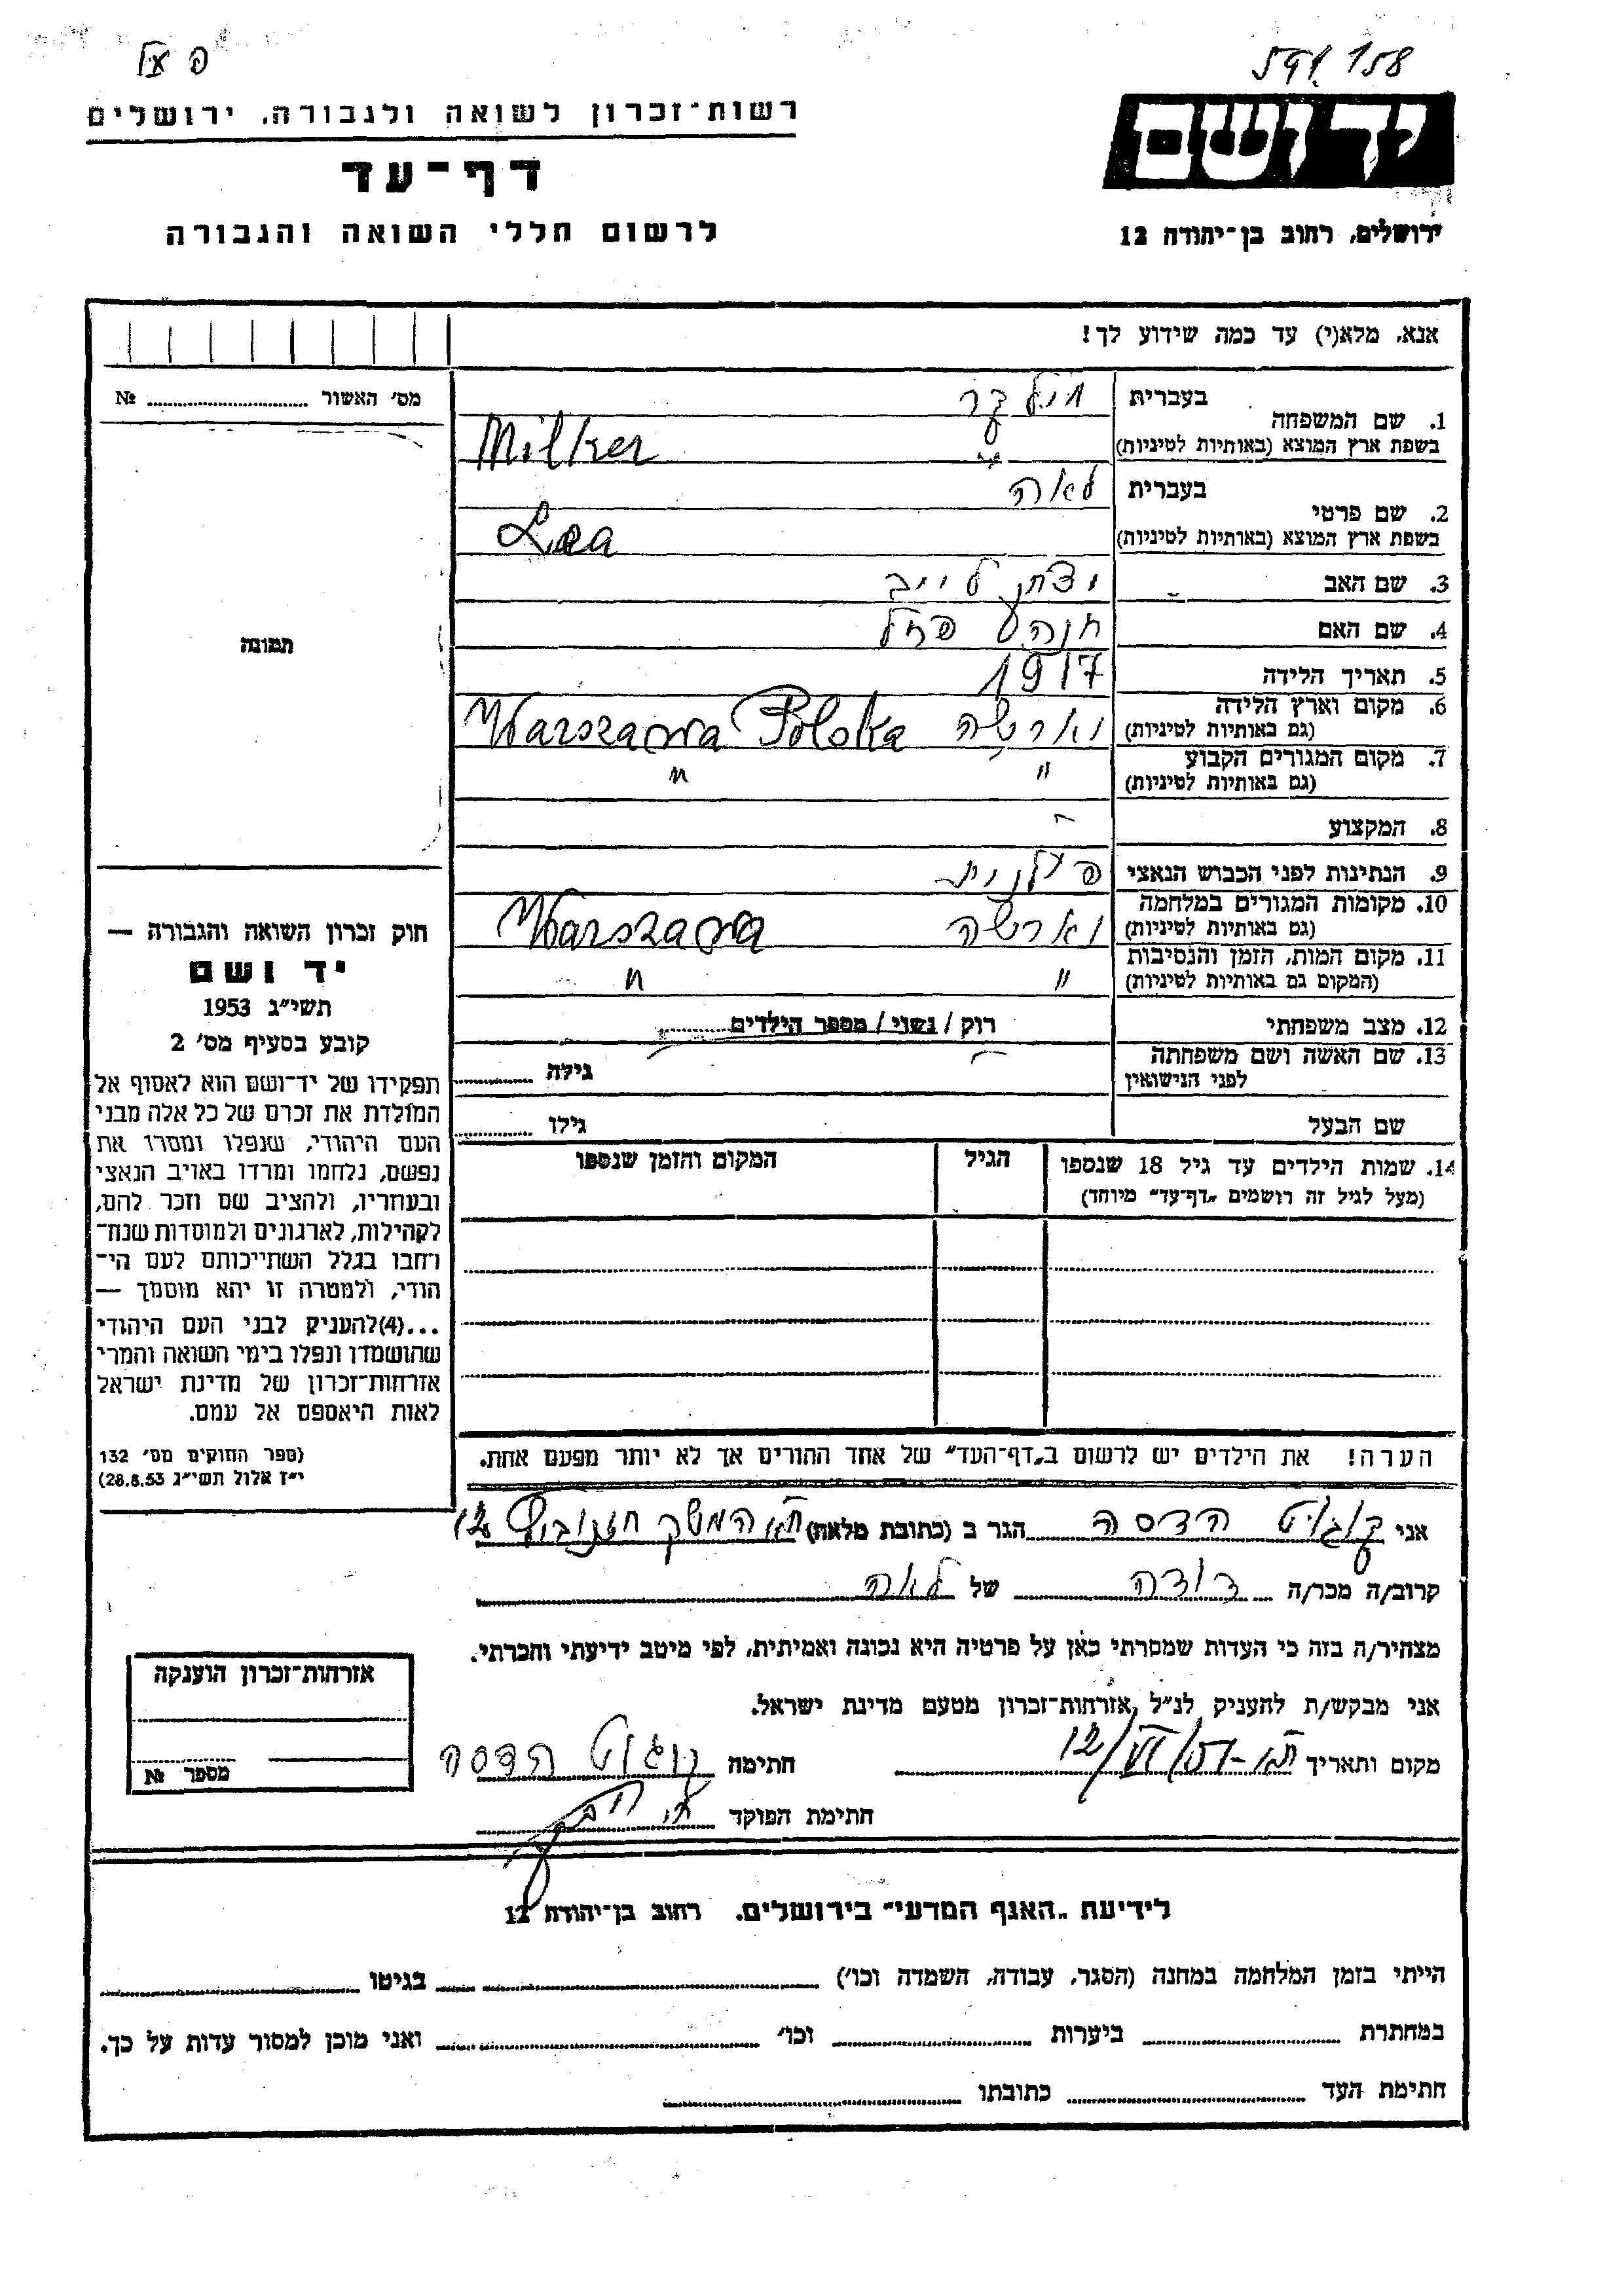 158
רשות־זכרון לשואה ולגבורה, ירושלים
יד ושם
דף־עד
לרשום חללי השואה והגבורה
ירושלים, רחוב בן־יהודה 12
אנא, מלא(י) עד כמה שידוע לך!
מס׳ האשור № ........
1. שם המשפחה בעברית מילקר
בשפת ארץ המוצא (באותיות לטיניות) Milker
2. שם פרטי בעברית לאה
בשפת ארץ המוצא (באותיות לטיניות) Lea
3. שם האב יצחק לייב
4. שם האם חנה רחל
5. תאריך הלידה 1917
6. מקום וארץ הלידה (גם באותיות לטיניות) ווארשה Warszawa Polska
7. מקום המגורים הקבוע (גם באותיות לטיניות) " "
8. המקצוע -
9. הנתינות לפני הכבוש הנאצי פולנית
10. מקומות המגורים במלחמה (גם באותיות לטיניות) ווארשה Warszawa
11. מקום המות, הזמן והנסיבות (המקום גם באותיות לטיניות) " "
12. מצב משפחתי רוק / נשוי / מספר הילדים
13. שם האשה ושם משפחתה לפני הנישואין גילה
שם הבעל גילו
14. שמות הילדים עד גיל 18 שנספו (מעל לגיל זה רושמים „דף־עד״ מיוחד) הגיל המקום והזמן שנספו
הערה! את הילדים יש לרשום ב„דף־העד״ של אחד ההורים אך לא יותר מפעם אחת.
תמונה
חוק זכרון השואה והגבורה —
יד ושם
תשי״ג 1953
קובע בסעיף מס׳ 2
תפקידו של יד־ושם הוא לאסוף אל
המולדת את זכרם של כל אלה מבני
העם היהודי, שנפלו ומסרו את
נפשם, נלחמו ומרדו באויב הנאצי
ובעוזריו, ולהציב שם וזכר להם,
לקהילות, לארגונים ולמוסדות שנח־
רבו בגלל השתייכותם לעם הי־
הודי, ולמטרה זו יהא מוסמך —
...(4) להעניק לבני העם היהודי
שהושמדו ונפלו בימי השואה והמרי
אזרחות־זכרון של מדינת ישראל
לאות היאספם אל עמם.
(ספר החוקים מס׳ 132
י״ז אלול תשי״ג 28.8.53)
אני הדסה הגר ב (כתובת מלאה) 12
קרוב/ה מכר/ה דודה של לאה
מצהיר/ה בזה כי העדות שמסרתי כאן על פרטיה היא נכונה ואמיתית, לפי מיטב ידיעתי והכרתי.
אני מבקש/ת להעניק לנ״ל אזרחות־זכרון מטעם מדינת ישראל.
מקום ותאריך חתימה הדסה
חתימת הפוקד
אזרחות־זכרון הוענקה
מספר №
לידיעת „האגף המדעי״ בירושלים. רחוב בן־יהודה 12
הייתי בזמן המלחמה במחנה (הסגר, עבודה, השמדה וכו׳) בגיטו
במחתרת ביערות וכו׳ ואני מוכן למסור עדות על כך.
חתימת העד כתובתו